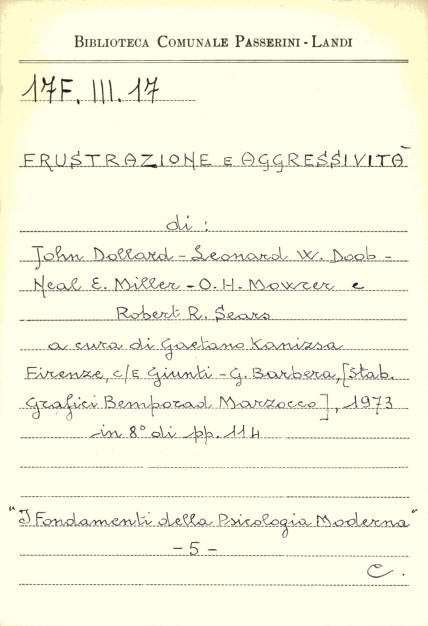 BIBLIOTECA COMUNALE PASSERINI - LANDI
17F. III. 17
FRUSTRAZIONE E AGGRESSIVITÀ
di :
John Dollard - Leonard W. Doob -
Neal E. Miller - O. H. Mowrer e
Robert R. Sears
a cura di Gaetano Kanizsa
Firenze, C/E Giunti - G. Barbera, [Stab.
Grafici Bemporad Marzocco], 1973
in 8° di pp. 114
"I Fondamenti della Psicologia Moderna"
- 5 -
C.